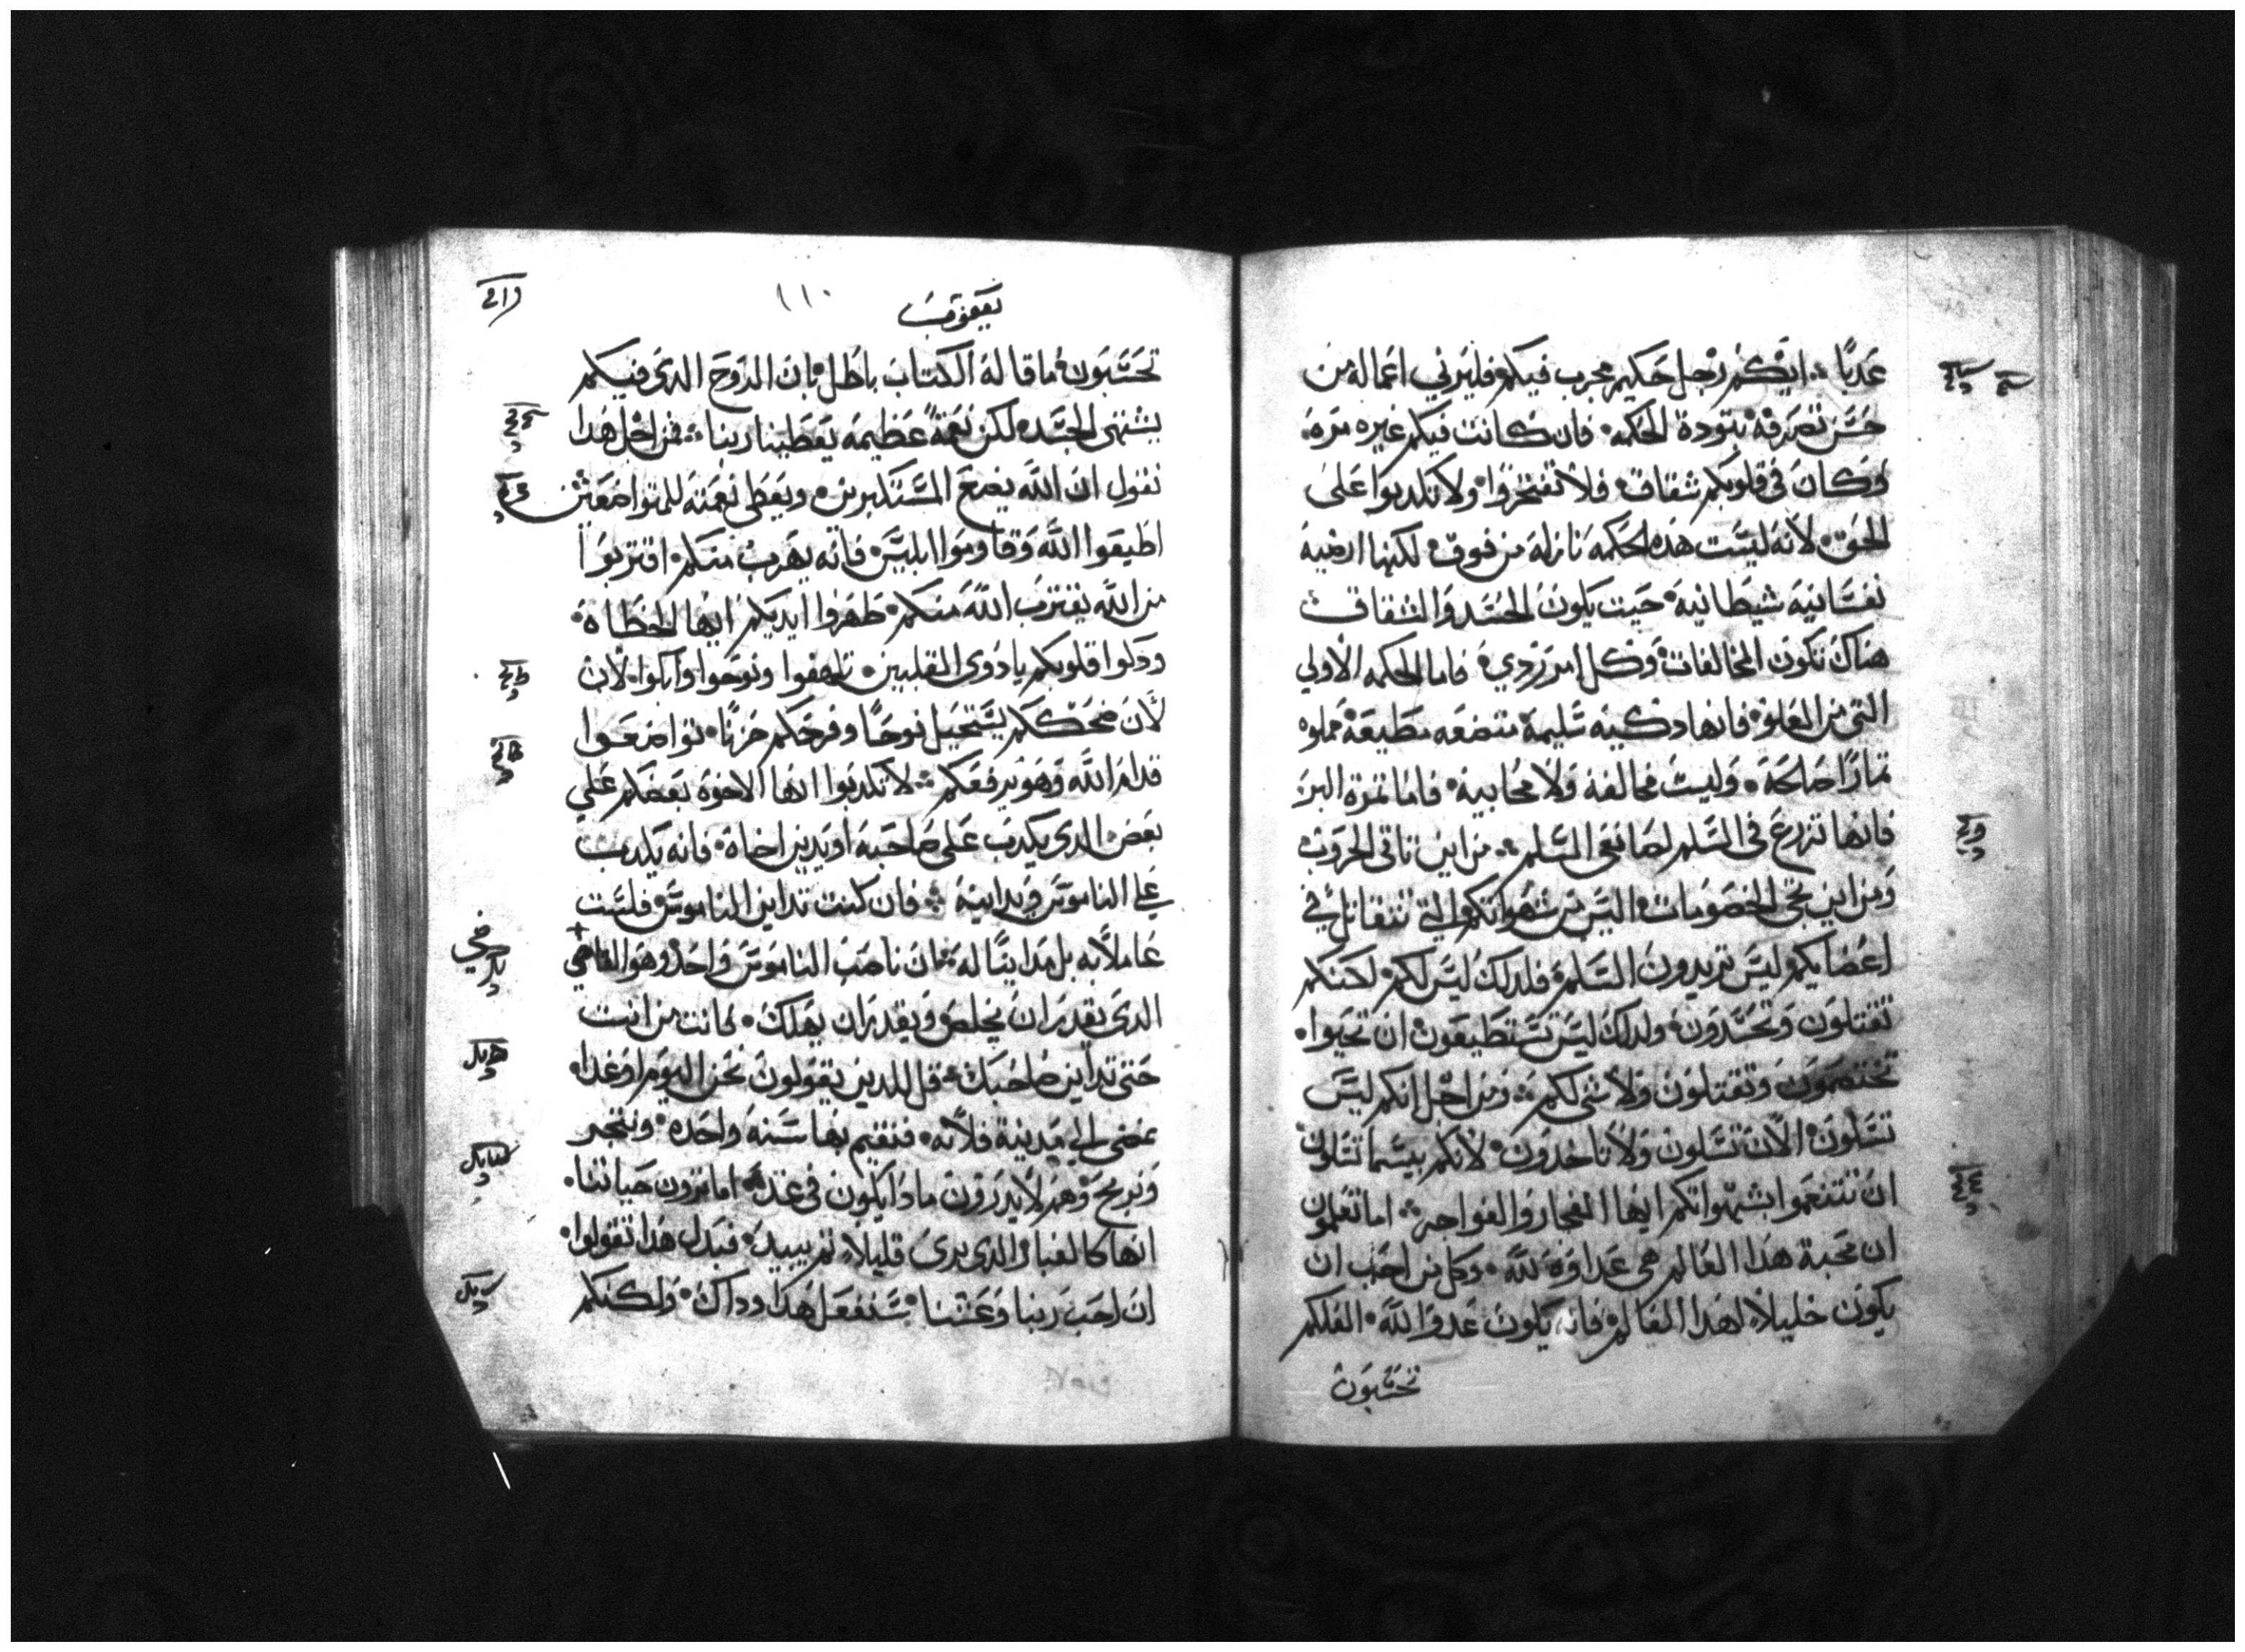 عدبًا ؞ ايكم رجل حكيم مجرب فيكم فليرني اعماله من
حسن تصرفه بتودة الحكمه ۰ فان كانت فيكم غيره مره
وكان في قلوبكم شقاق ۰ فلا تفتخروا ۰ ولا تكدبوا على
الحق ۰ لانه ليست هذه الحكمه نازلة من فوق ۰ لكنها ارضية
نفسانيه شيطانيه ۰ حيت يكون الحسد والشقاق
هناك تكون المخالفات وكل امر زدي ۰ فاما الحكمه الاولي
التي من العلو ۰ فانها دكيه سليمة متضعه مطيعة مملوه
تمارًا صالحة ۰ وليست مخالفة ولا محابية ۰ فاما تمرة البر
فانها تزرع في السلم لصانعي السلم ؞ من اين تاتي الحروب
ومن اين تجي الخصومات اليس من شهواتكم التي تتقاتل في
اعضايكم ليس تريدون السلم فلدلك ليس لكم ۰ لكنكم
تقتلون وتحسدون ۰ ولدلك ليس تستطيعون ان تحيوا ۰
تختصمون وتقتلون ولا شي لكم ؞ ومن اجل انكم ليس
تسلون ۰ الان تسلون ولا تاخدون ۰ لانكم بيسما تسلون
ان تتنعموا بشهواتكم ايها الفجار والفواجر ؞ اما تعلمون
ان محبة هدا العالم هي عداوة لله ۰ وكل من احب ان
يكون خليلاً لهدا العالم فانه يكون عدوا لله ۰ افلكم
تحتسبون
يعقوب
١١٠
تحتسبون ما قاله الكتاب باطل ۰ بان الروح الدي فيكم
يشتهي الحسد لكن نعمة عظيمه يعطينا ربنا ؞ فمن اجل هدا
نقول ان الله يضع المستكبرين ۰ ويعطي نعمته للمتواضعين
اطيعوا الله وقاوموا ابليس فانه يهرب منكم ۰ اقتربوا
من الله يقترب الله منكم ۰ طهروا ايديكم ايها الخطاة ۰
ودكوا قلوبكم يا دوي القلبين ۰ تلهفوا ونوحوا وابكوا لان
لان ضحككم يستحيل نوحًا وفرحكم حزنًا ۰ تواضعوا
قدام الله وهو يرفعكم ؞ لا تكدبوا ايها الاخوة بعضكم علي
بعض الدي يكدب على صاحبه او يدين اخاه ۰ فانه يكدب
علي الناموس ويداينه ؞ فان كنت تداين الناموس فلست
عاملاً به بل مداينًا له ؞ فان ناصب الناموس واحد وهو القاضي
الدي يقدر ان يخلص ويقدر ان يهلك ۰ فانت من انت
حتى تداين صاحبك ؞ قل للدين يقولون نحن اليوم او غدا ۰
نمضي الي مدينة فلانه ۰ فنقيم بها سنه واحده ۰ ونتجر
ونربح ۰ وهم لا يدرون مادا يكون في غد ۰ اما ترون حياتنا ۰
انها كالغبار الدي يرى قليلاً تم يبيد ۰ فبدل هدا تقولوا ۰
ان احب ربنا وعشنا ۰ سنفعل هدا وداك ۰ ولكنكم